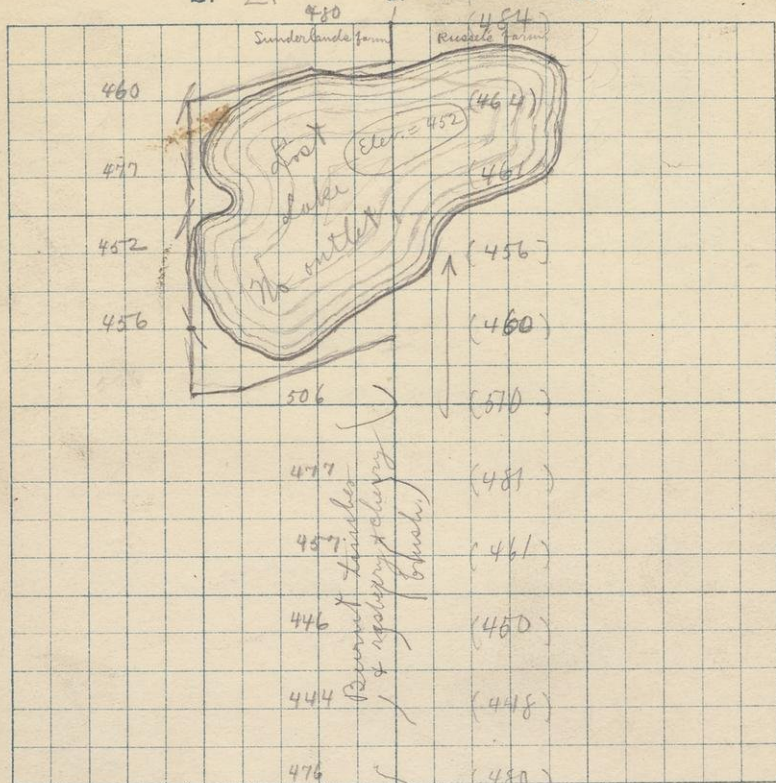 480 (484)
Sunderlands farm Russels farm
460 (464)
Elev. = 452
Lost
477 (461)
Lake
452 (456)
No outlet
456 (460)
506 (510)
477 (481)
457 (461)
446 (450)
444 (448)
476 (480)
Burnt timber
& rasberry & cherry
brush.